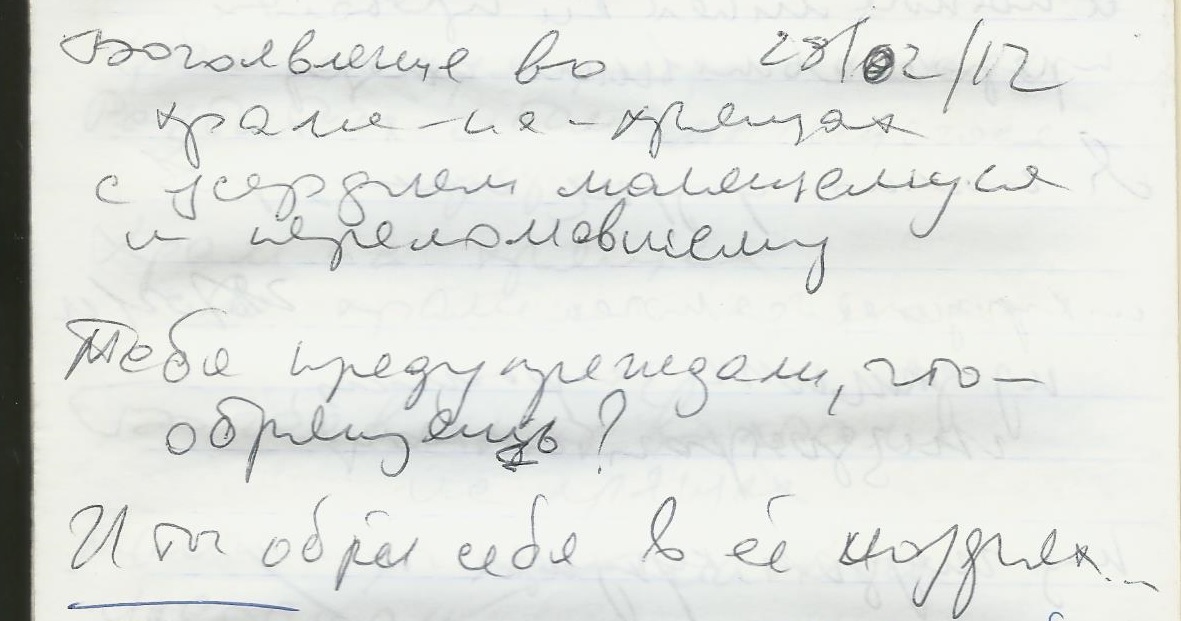 Богоявление во 28/02/12
храме-на-хрящах
с усердием молящемуся
и переломавшему
Тебя предупреждали, что –
обрящешь?
И ты обрёл себя в её ноздрях...